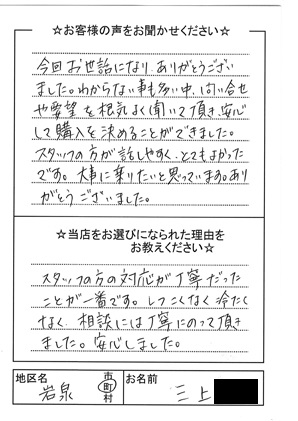 ☆お客様の声をお聞かせください☆
今回お世話になり、ありがとうござい
ました。わからない事も多い中、問い合せ
や要望を根気よく聞いて頂き、安心
して購入を決めることができました。
スタッフの方が話しやすく、とてもよかった
です。大事に乗りたいと思っています。あり
がとうございました。
☆当店をお選びになられた理由を
お教えください☆
スタッフの方の対応が丁寧だった
ことが一番です。しつこくなく冷たく
なく、相談には丁寧にのって頂き
ました。安心しました。
地区名 岩泉 市町村 お名前 三上